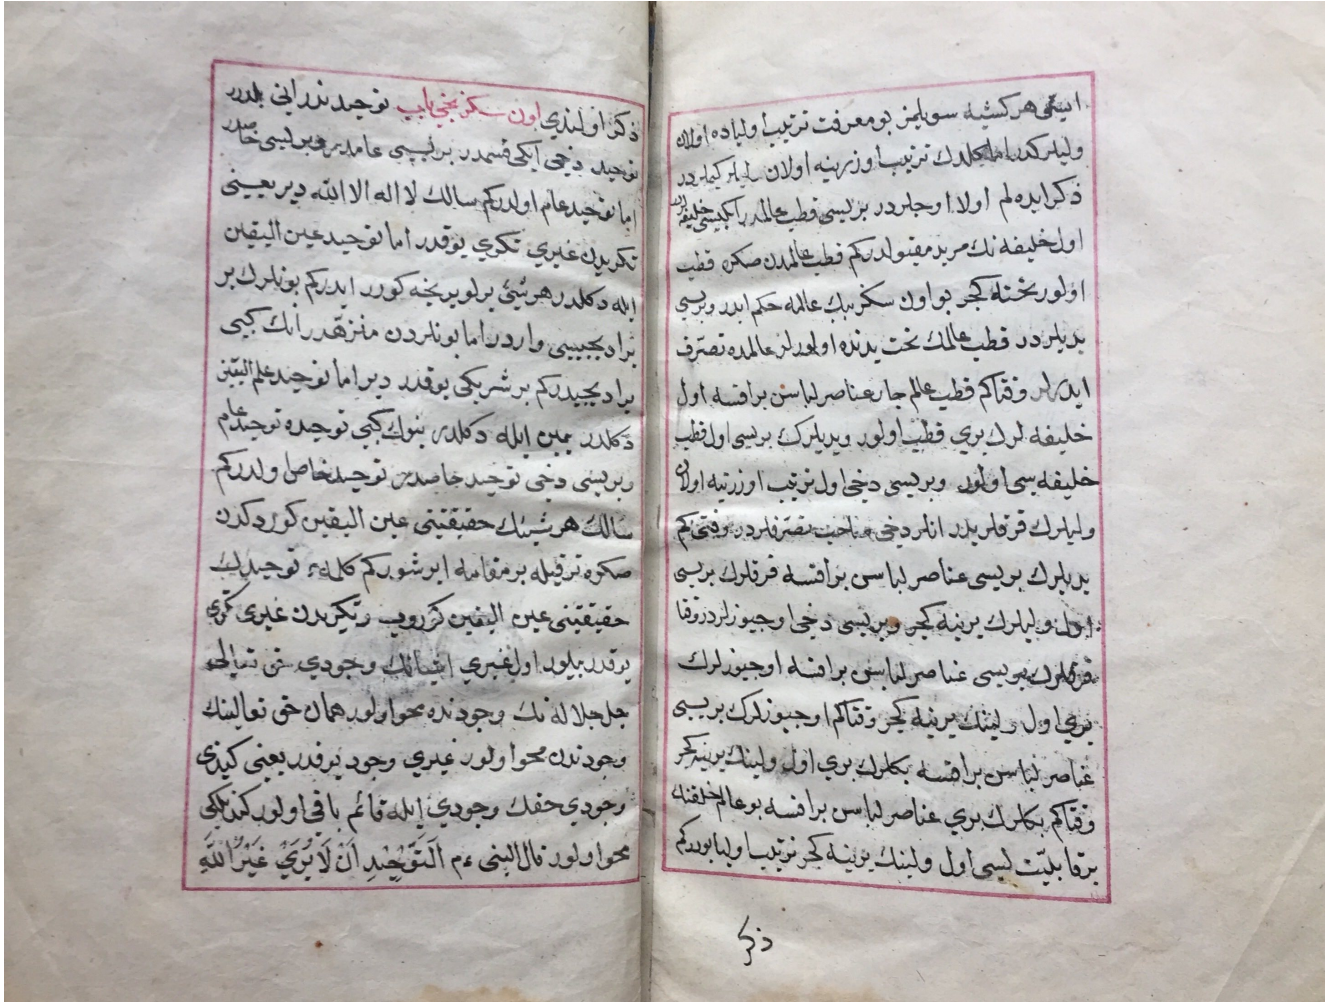 ايتمی هر كشيه سويلمز بو معرفت ترتيب اولياده اولان
وليلر كدر اما كلدك ترتيب اوزرينه اولان وليلر كيملردر
ذكر ايده لم اولا اوجلردر بريسی قطب عالمدر ايكيسی خليفه لردر
اول خليفه نك مريد مقبولدركم قطب عالمدن صكره قطب
اولور تخته كچر بو اون سكز بيك عالمه حكم ايدر وبريسی
يديلردر قطب عالمك تحت يدنده اولورلر عالمده تصرف
ايدرلر وقتاكم قطب عالم چار عناصر لباسن براقسه اول
خليفه لرك بری قطب اولور ويديلرك بريسی اول قطب
خليفه سی اولور وبريسی دخی اول ترتيب اوزرنيه اولان
وليلرك قرقلريدر انلر دخی صاحب تصرفلردر وقتی كم
يديلرك بريسی عناصر لباسن براقسه قرقلرك بريسی
اول وليلرك يرينه كچر وبريسی دخی اوچيوزلردر وقتا
قرقلرك بريسی عناصر لباسن براقسه اوچيوزلرك
بری اول ولينك يرينه كچر وقتاكم اوچيوزلرك بريسی
عناصر لباسن براقسه بكلرك بری اول ولينك يرينه كچر
وقتاكم بكلرك بری عناصر لباسن براقسه بو عالم خلقنك
برقابليت ليسی اول ولينك يرينه كچر ترتيب اوليا بودركم
ذكر
ذكر اولندی اون سكزنجی باب توحيد ندر انی بلدرر
توحيد دخی ايكی قسمدر بريسی عامدر وبريسی خاصدر
اما توحيد عام اولدركم سالك لا اله الا الله دير يعنی
تكريدن غيری تكری يوقدر اما توحيد عين اليقين
ايله دكلدر هر شيئ يرلو يرنجه كورر ايدركم بونلرك بر
براديجيسی واردر اما بونلردن منزهدر انك كبی
براديجيدركم بر شريكی يوقدر دير اما توحيد علم اليقين
دكلدر يمين ايله دكلدر بنوك كبی توحيده توحيد عام
وبريسی دخی توحيد خاصدر توحيد خاص اولدركم
سالك هر شيئك حقيقتينی عين اليقين كوردكدن
صكره ترقيله بر مقامه ايرشوركم كلمهء توحيدك
حقيقتينی عين اليقين كوروب وتكريدن غيری تكری
يوقدر بيلور اول غيری اشيانك وجودی حق تعالی
جل جلاله نك وجودنده محو اولور همان حق تعالينك
وجودندن محو اولور غيری وجود يوقدر يعنی كيندی
وجودی حقك وجودی ايله قائم باقی اولور كندیلكی
محو اولور قال النبی ءم اَلتَّوْحِيْدِ اَنْ لَا يُرَیْ غَيْرُ اللّٰهِ